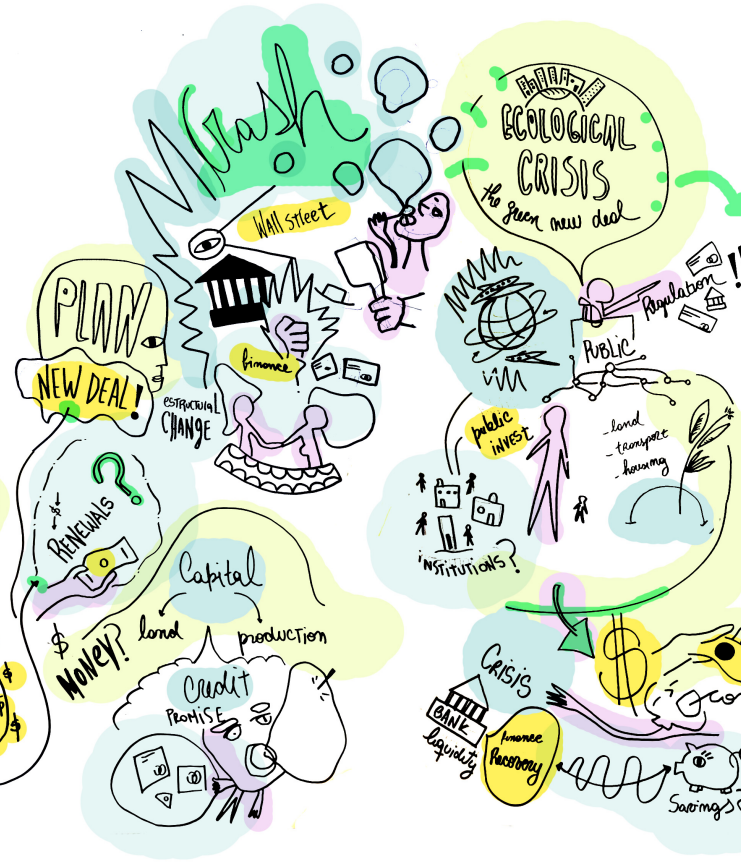 Crash
WALL STREET
finance
ESTRUCTURAL
CHANGE
PLAN
NEW DEAL!
?
-$-
RENEWALS
Capital
land
production
$
MONEY?
Credit
PROMISE
$
$
ECOLOGICAL
CRISIS
the green new deal
Regulation
!!
PUBLIC
public
INVEST
- land
- transport
- housing
INSTITUTIONS?
CRISIS
$
BANK
liquidity
finance
Recovery
Savings